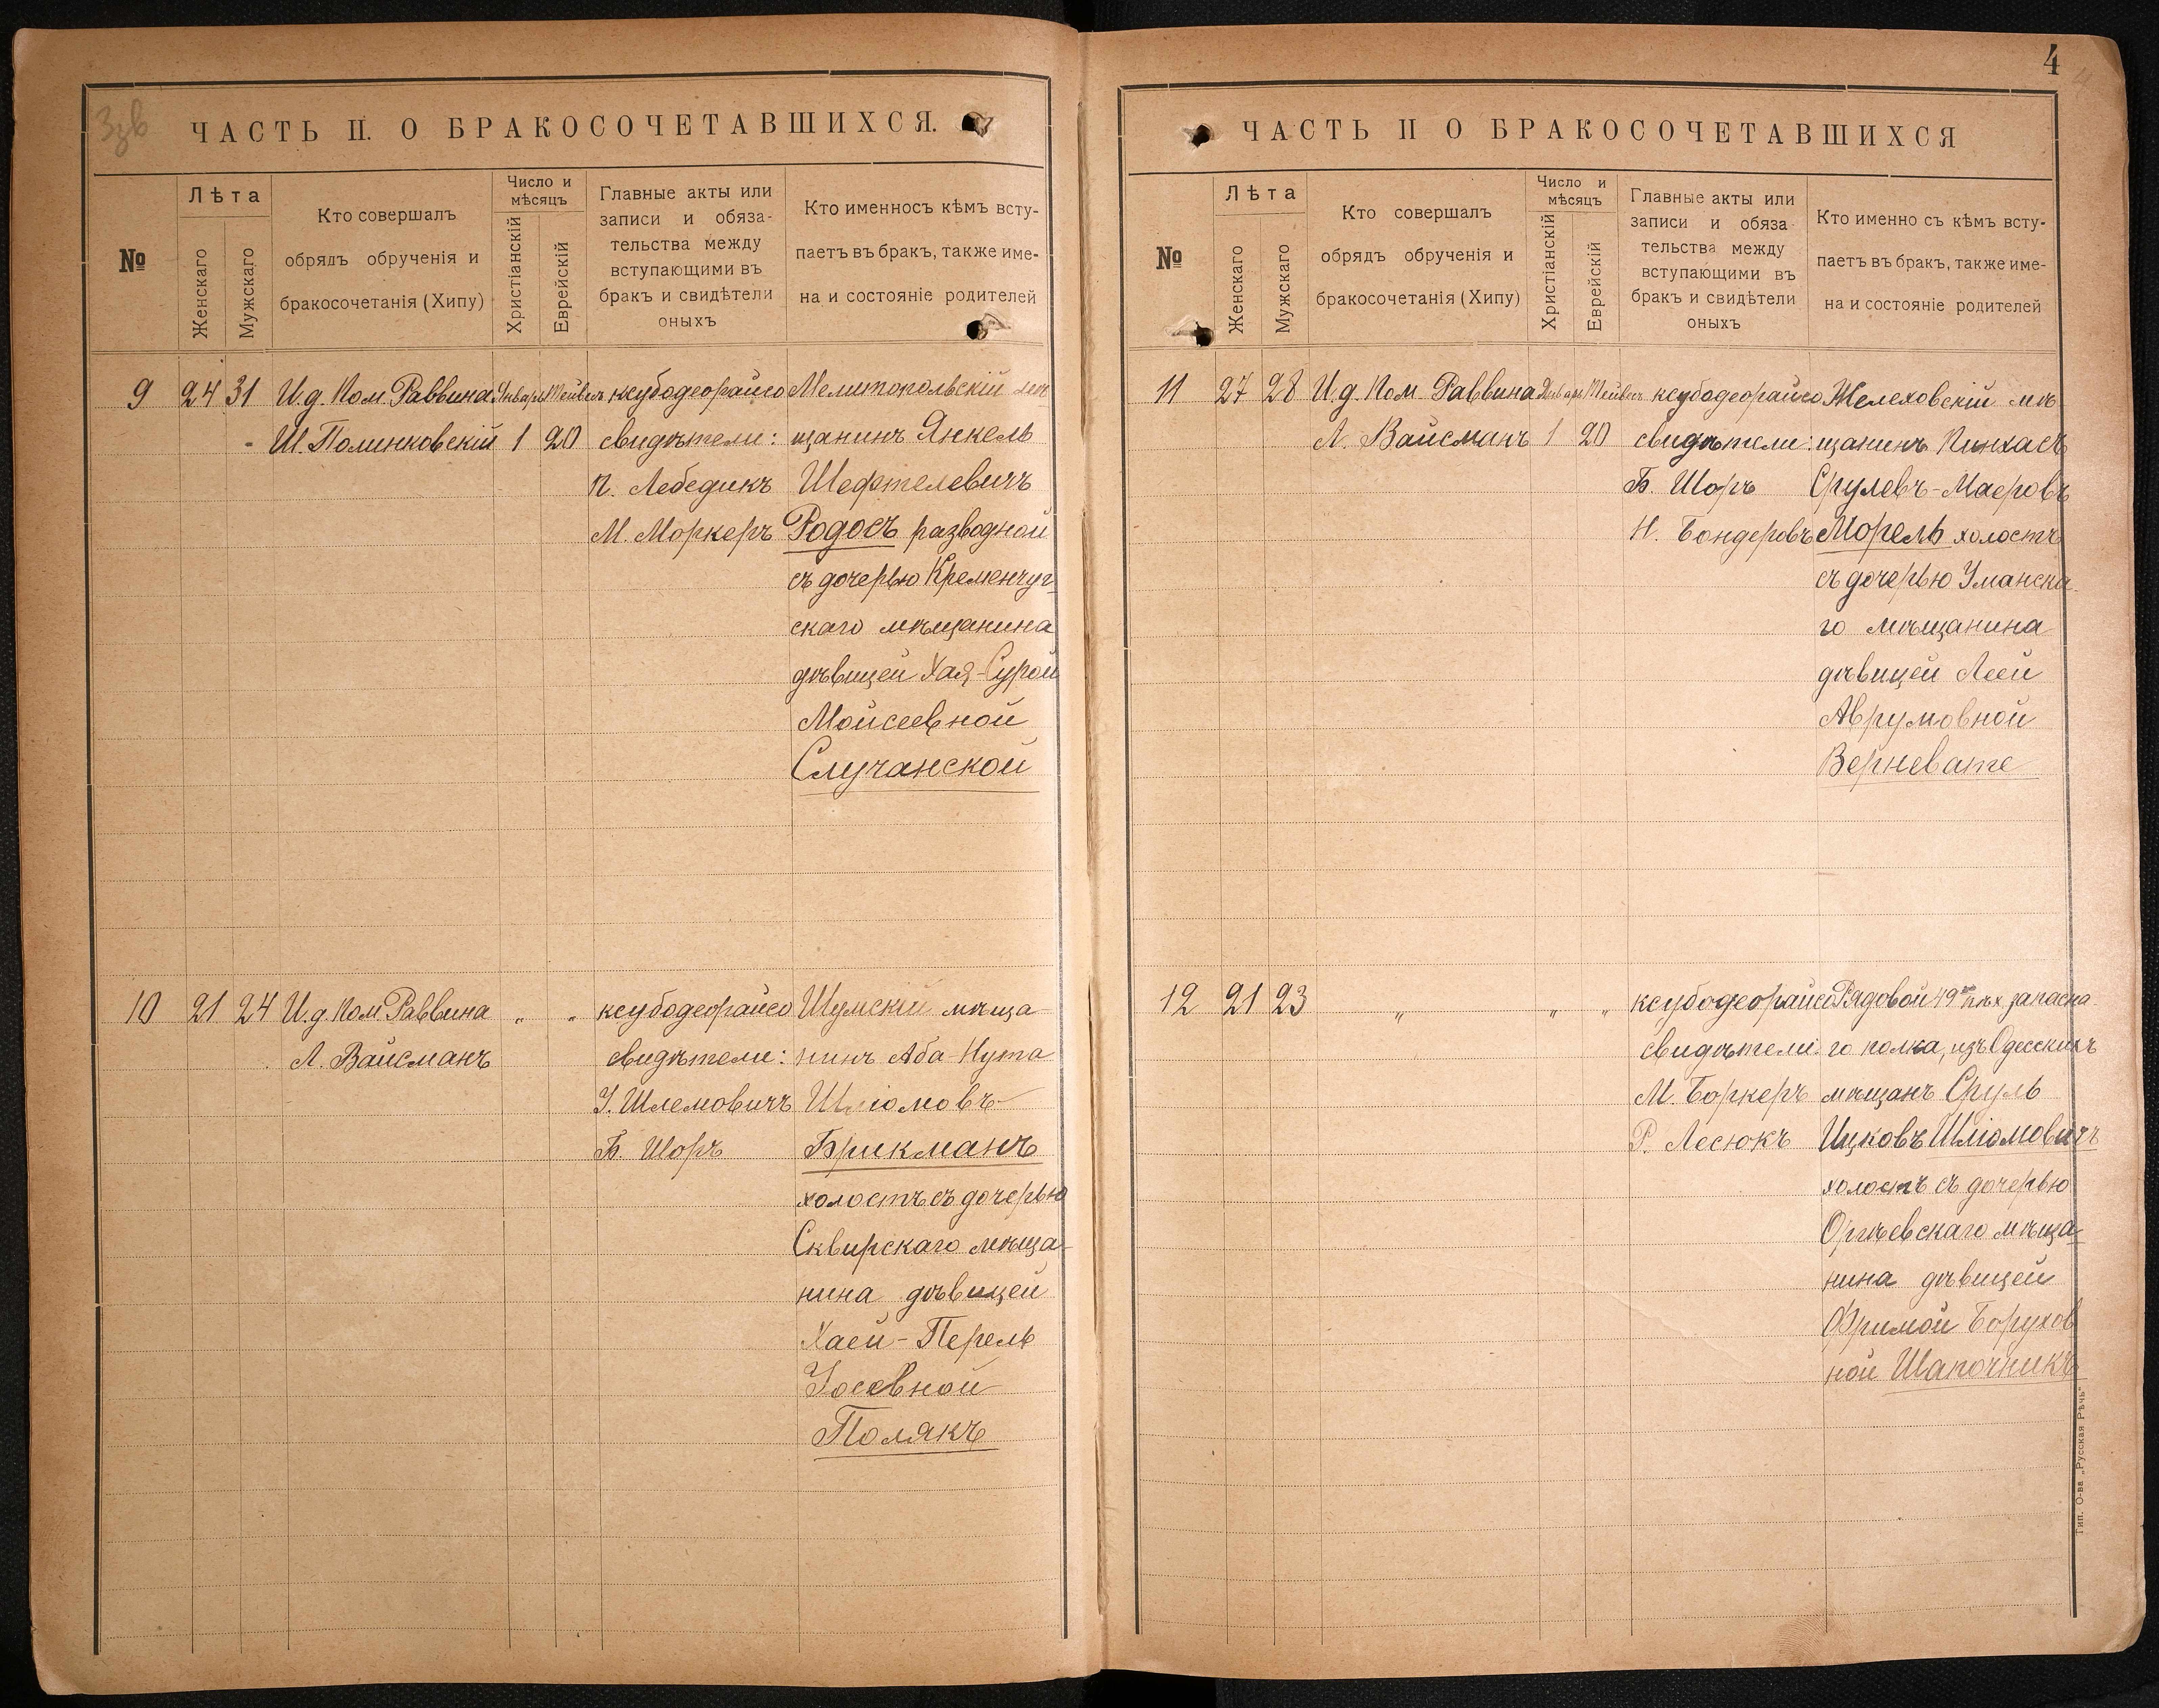 ЧАСТЬ II. О БРАКОСОЧЕТАВШИХСЯ.
№
Лѣта
Женскаго
Мужскаго
Кто совершалъ
обрядъ обрученія и
бракосочетанія (Хипу)
Число и
мѣсяцъ
Христіанскій
Еврейскій
Главные акты или
записи и обяза-
тельства между
вступающими въ
бракъ и свидѣтели
оныхъ
Кто именносъ кѣмъ всту-
паетъ въ бракъ, также име-
на и состояніе родителей
9
24
31
И.д. Пом. Раввина
Ш. Полинковскій
Январь
1
Тейвесъ
20
ксубодеорайсо
свидѣтели:
П. Лебедикъ
М. Моркеръ
Мелитопольскій мѣ
щанинъ Янкель
Шефтелевичъ
Родосъ разводной
съ дочерью Кременчуг-
скаго мѣщанина
дѣвицей Хая-Сурой
Мойсеевной
Случанской
10
21
24
И.д. Пом. Раввина
Л. Вайсманъ
„
„
ксубодеорайсо
свидѣтели:
І. Шлемовичъ
Б. Шоръ
Шумскій мѣща-
нинъ Аба-Нута
Шліомовъ
Брикманъ
холостъ съ дочерью
Сквирскаго мѣща-
нина дѣвицей
Хаей-Перель
Іосевной
Полякъ
4
ЧАСТЬ II О БРАКОСОЧЕТАВШИХСЯ
№
Лѣта
Женскаго
Мужскаго
Кто совершалъ
обрядъ обрученія и
бракосочетанія (Хипу)
Число и
мѣсяцъ
Христіанскій
Еврейскій
Главные акты или
записи и обяза
тельства между
вступающими въ
бракъ и свидѣтели
оныхъ
Кто именно съ кѣмъ всту-
паетъ въ бракъ, также име-
на и состояніе родителей
11
27
28
И.д. Пом. Раввина
Л. Вайсманъ
Январь
1
Тейвесъ
20
ксубодеорайсо
свидѣтели:
Б. Шоръ
Н. Бондеровъ
Желеховскій мѣ
щанинъ Пинхасъ
Срулевъ-Маеровъ
Морель холостъ
съ дочерью Уманска-
го мѣщанина
дѣвицей Леей
Аврумовной
Верневате
12
21
23
„
„
„
ксубодеорайсо
свидѣтели:
М. Боркеръ
Р. Лесюкъ
Рядовой 49 пѣх запасна
го полка, изъ Одесскихъ
мѣщанъ Сруль
Ицковъ Шліомовичъ
холостъ съ дочерью
Оргѣевскаго мѣща-
нина дѣвицей
Фримой Борухов
ной Шапочникъ
Тип. О-ва „Русская Рѣчь"